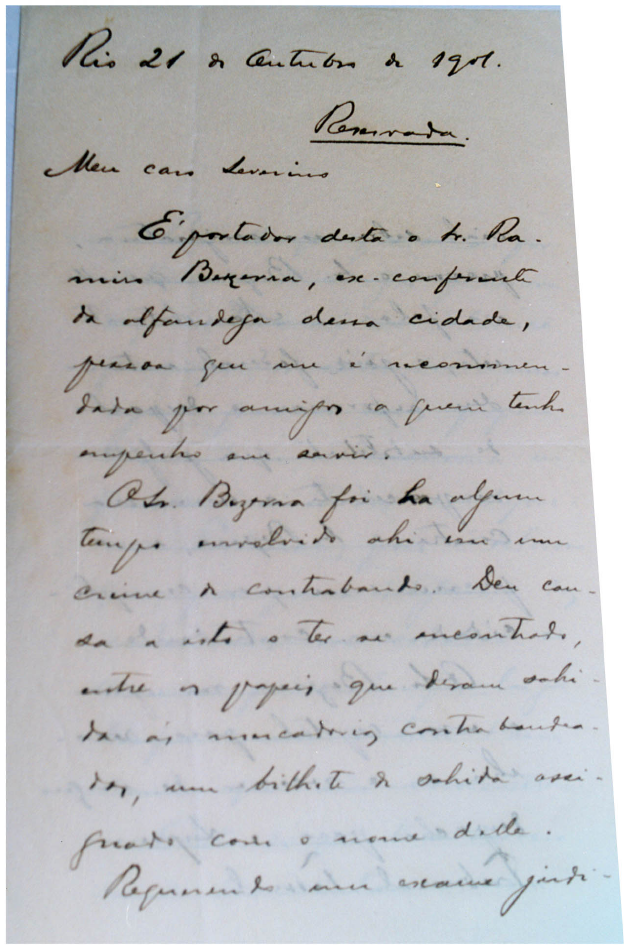 Rio 21 de Outubro de 1901.
Reservada.
Meu caro Severino
É portador desta o Sr. Ra-
miro Bezerra, ex-conferente
da alfandega dessa cidade,
pessoa que me é recommen-
dada por amigos a quem tenho
empenho em servir.
O Sr. Bezerra foi ha algum
tempo envolvido ahi em um
crime de contrabando. Deu cau-
sa a isto o ter se encontrado,
entre os papeis que deram sahi-
da ás mercadorias contrabandea-
das, um bilhete de sahida assi-
gnado com o nome delle.
Requerendo um exame judi-